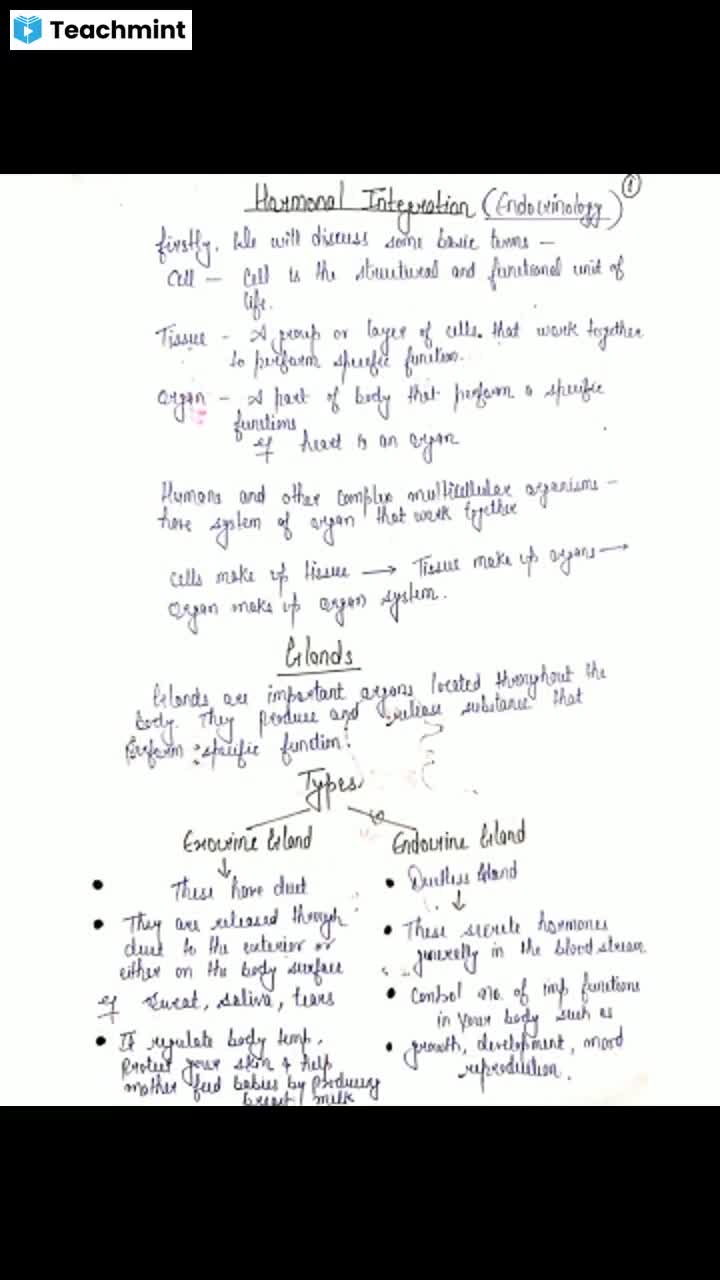 Teachmint
1
Hormonal Integration (Endocrinology)
firstly. We will discuss some basic terms –
Cell – Cell is the structural and functional unit of
life.
Tissue – A group or layer of cells. that work together
to perform specific function.
Organ – A part of body that perform a specific
functions
eg heart is an organ
Humans and other complex multicellular organisms –
have system of organ that work together
Cells make up tissue → Tissue make up organs →
Organ make up organ system.
Glands
Glands are important organs located throughout the
body. They produce and release substance that
perform specific function.
Types
Exocrine Gland
↓
• These have duct
• They are released through
duct to the exterior or
either on the body surface
eg Sweat, saliva, tears
• It regulate body temp.
Protect your skin & help
mother feed babies by producing
breast milk
Endocrine Gland
• Ductless Gland
↓
• These secrete hormones
generally in the blood stream
• Control no. of imp functions
in your body such as
• growth, development, mood
reproduction.